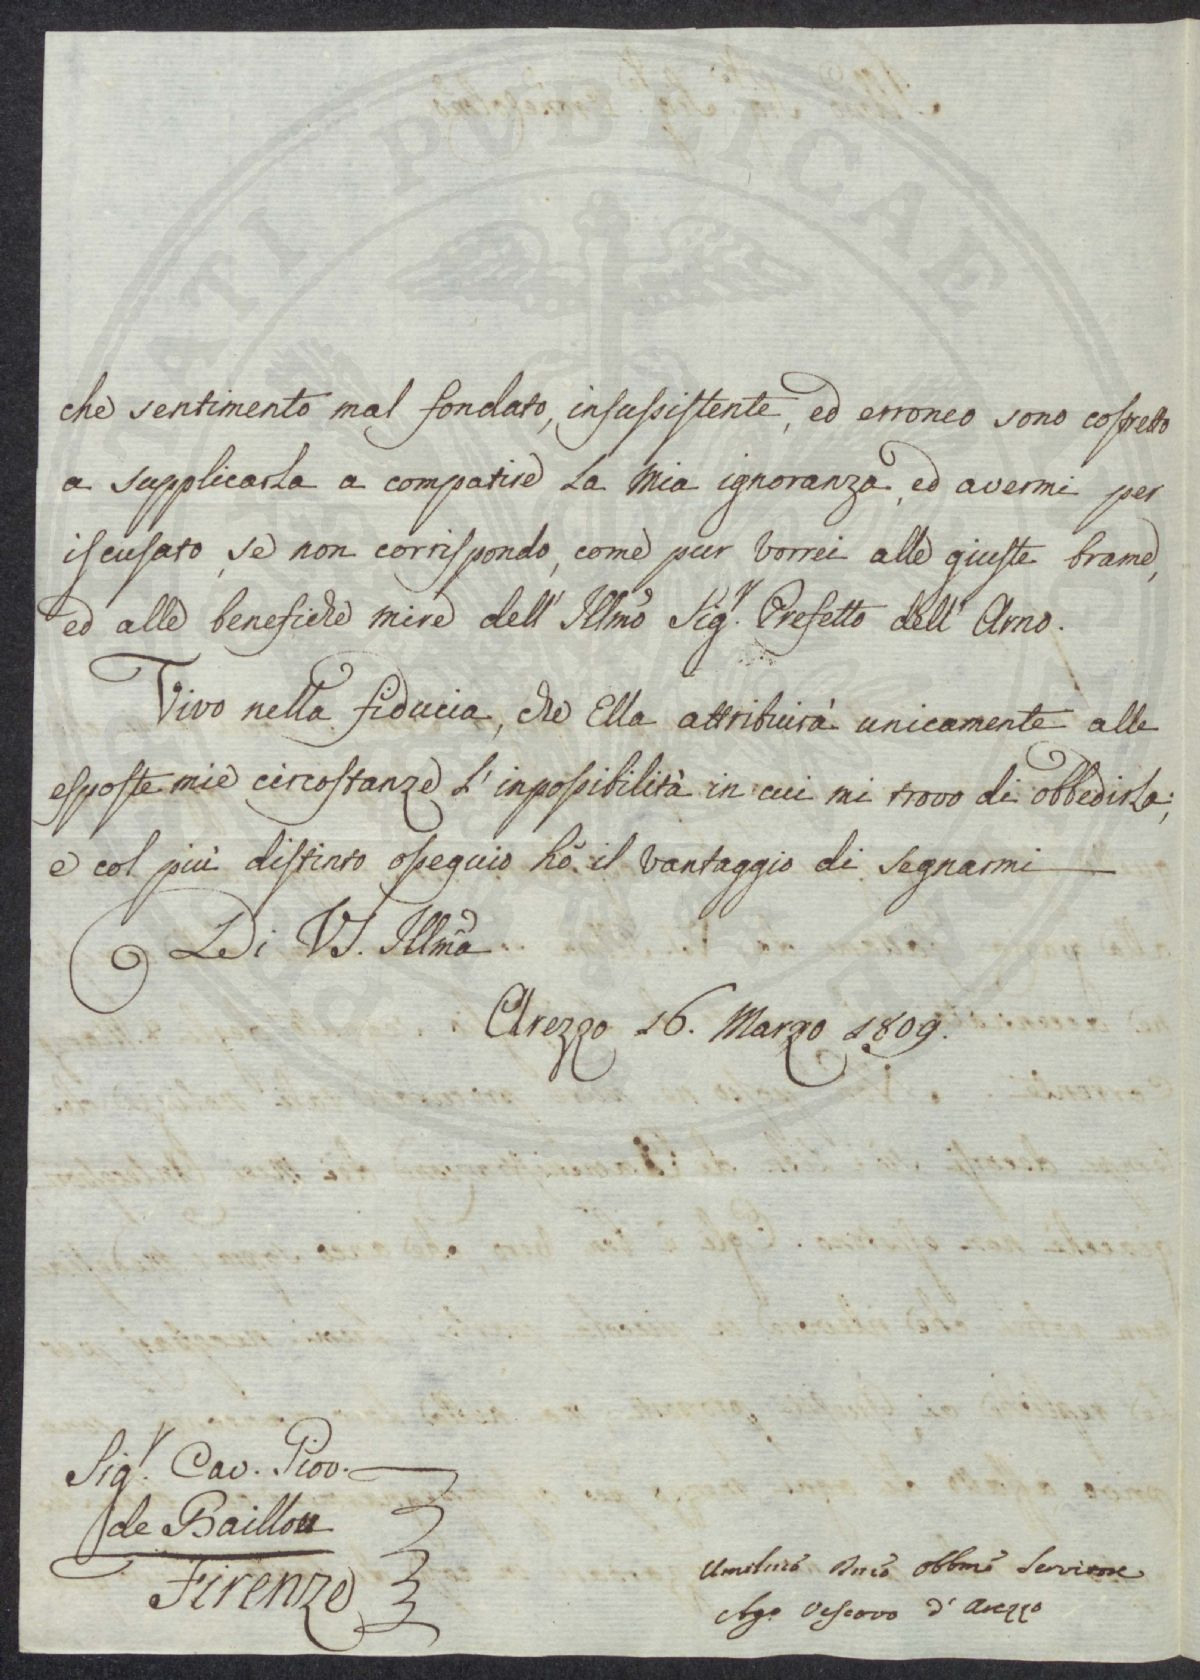 che sentimento mal fondato, insussistente, ed erroneo sono costretto
a supplicarla a compatire la mia ignoranza, ed avermi per
iscusato, se non corrispondo, come pur vorrei alle giuste brame,
ed alle benefiche mire dell' Illmo Sigr. Prefetto dell' Arno.
Vivo nella fiducia, che Ella attribuirà unicamente alle
esposte mie circostanze l'inpossibilità in cui mi trovo di obbedirla;
e col più distinto ossequio hò il vantaggio di segnarmi
Di VS. Illma
Arezzo 16. Marzo 1809.
Sigr. Cav. Giov.
de Baillou
Firenze
Obbmo Servitore
Agº Vescovo d'Arezzo
PUBLICAE